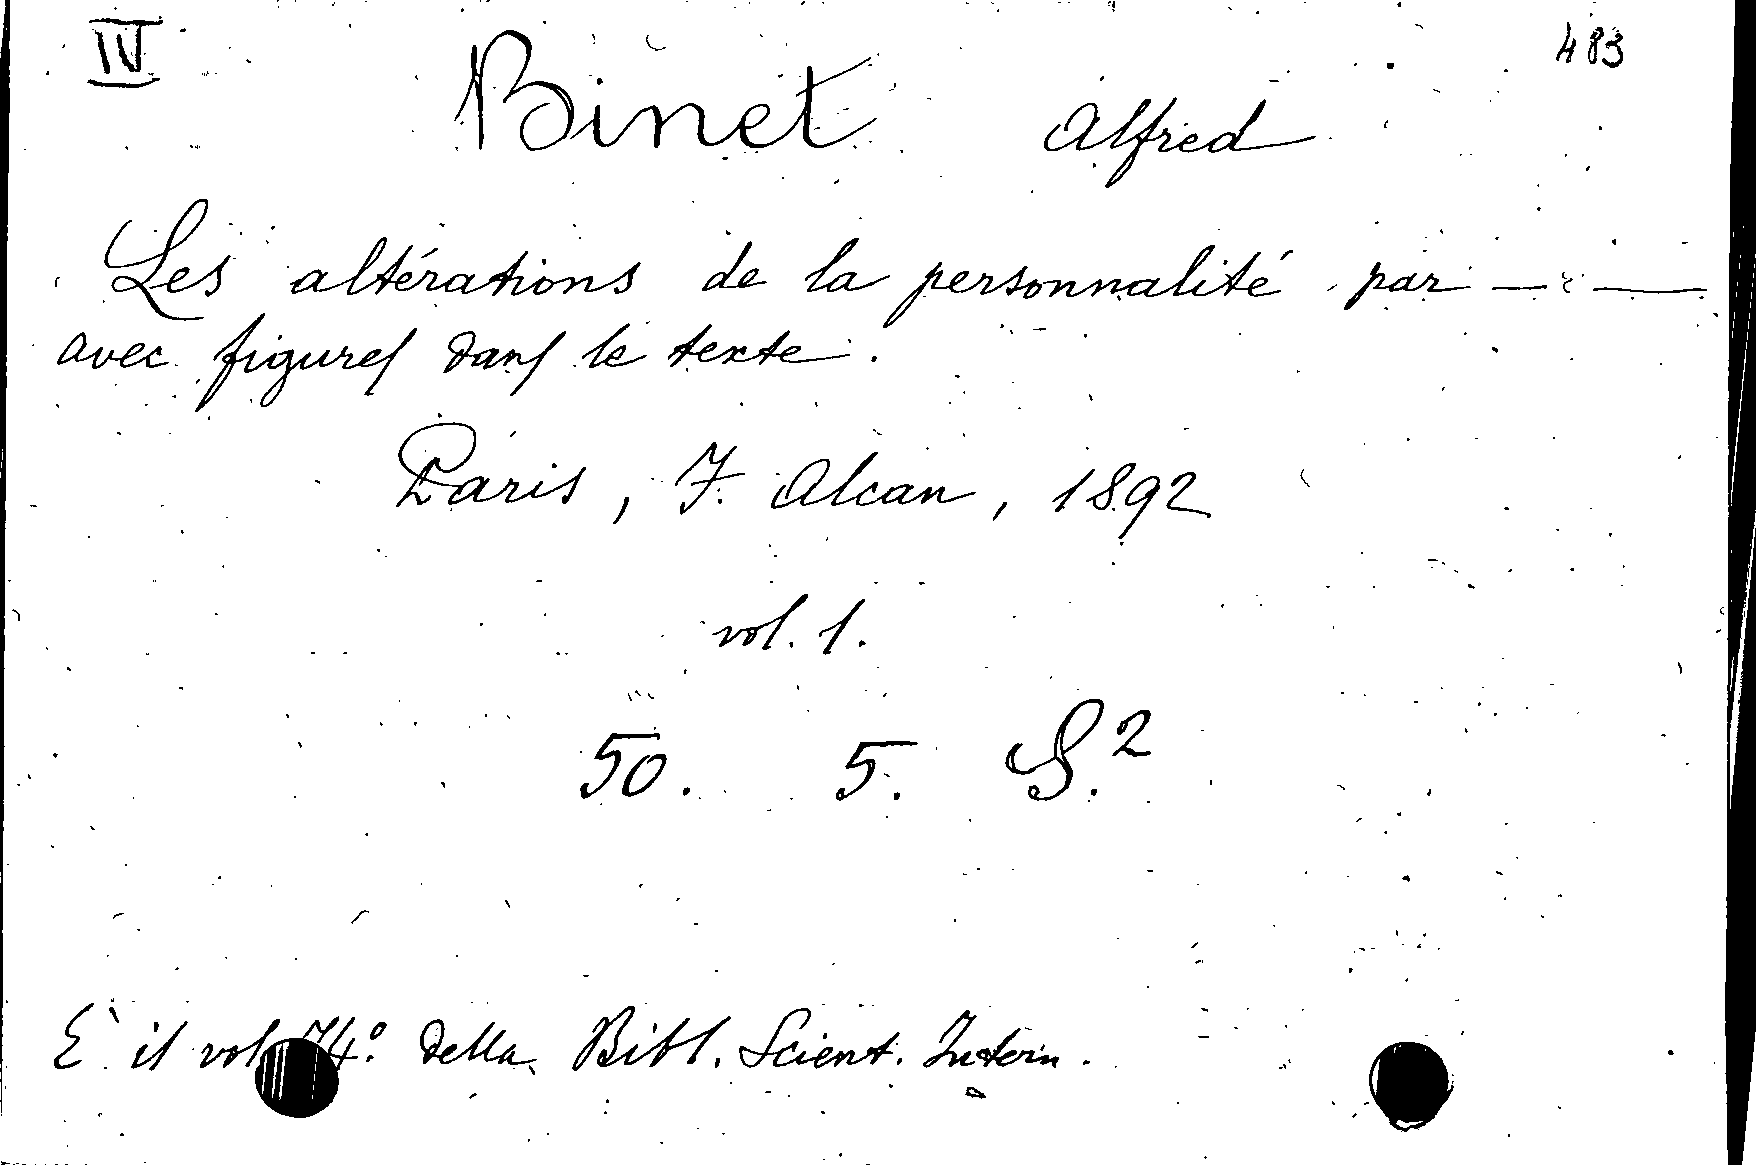 IV 483
Binet Alfred
Les altérations de la personnalité par — —
avec figures dans le texte.
Paris, F. Alcan, 1892
vol. 1.
50. 5. S.²
E' il vol 74.° della Bibl. Scient. Intern.